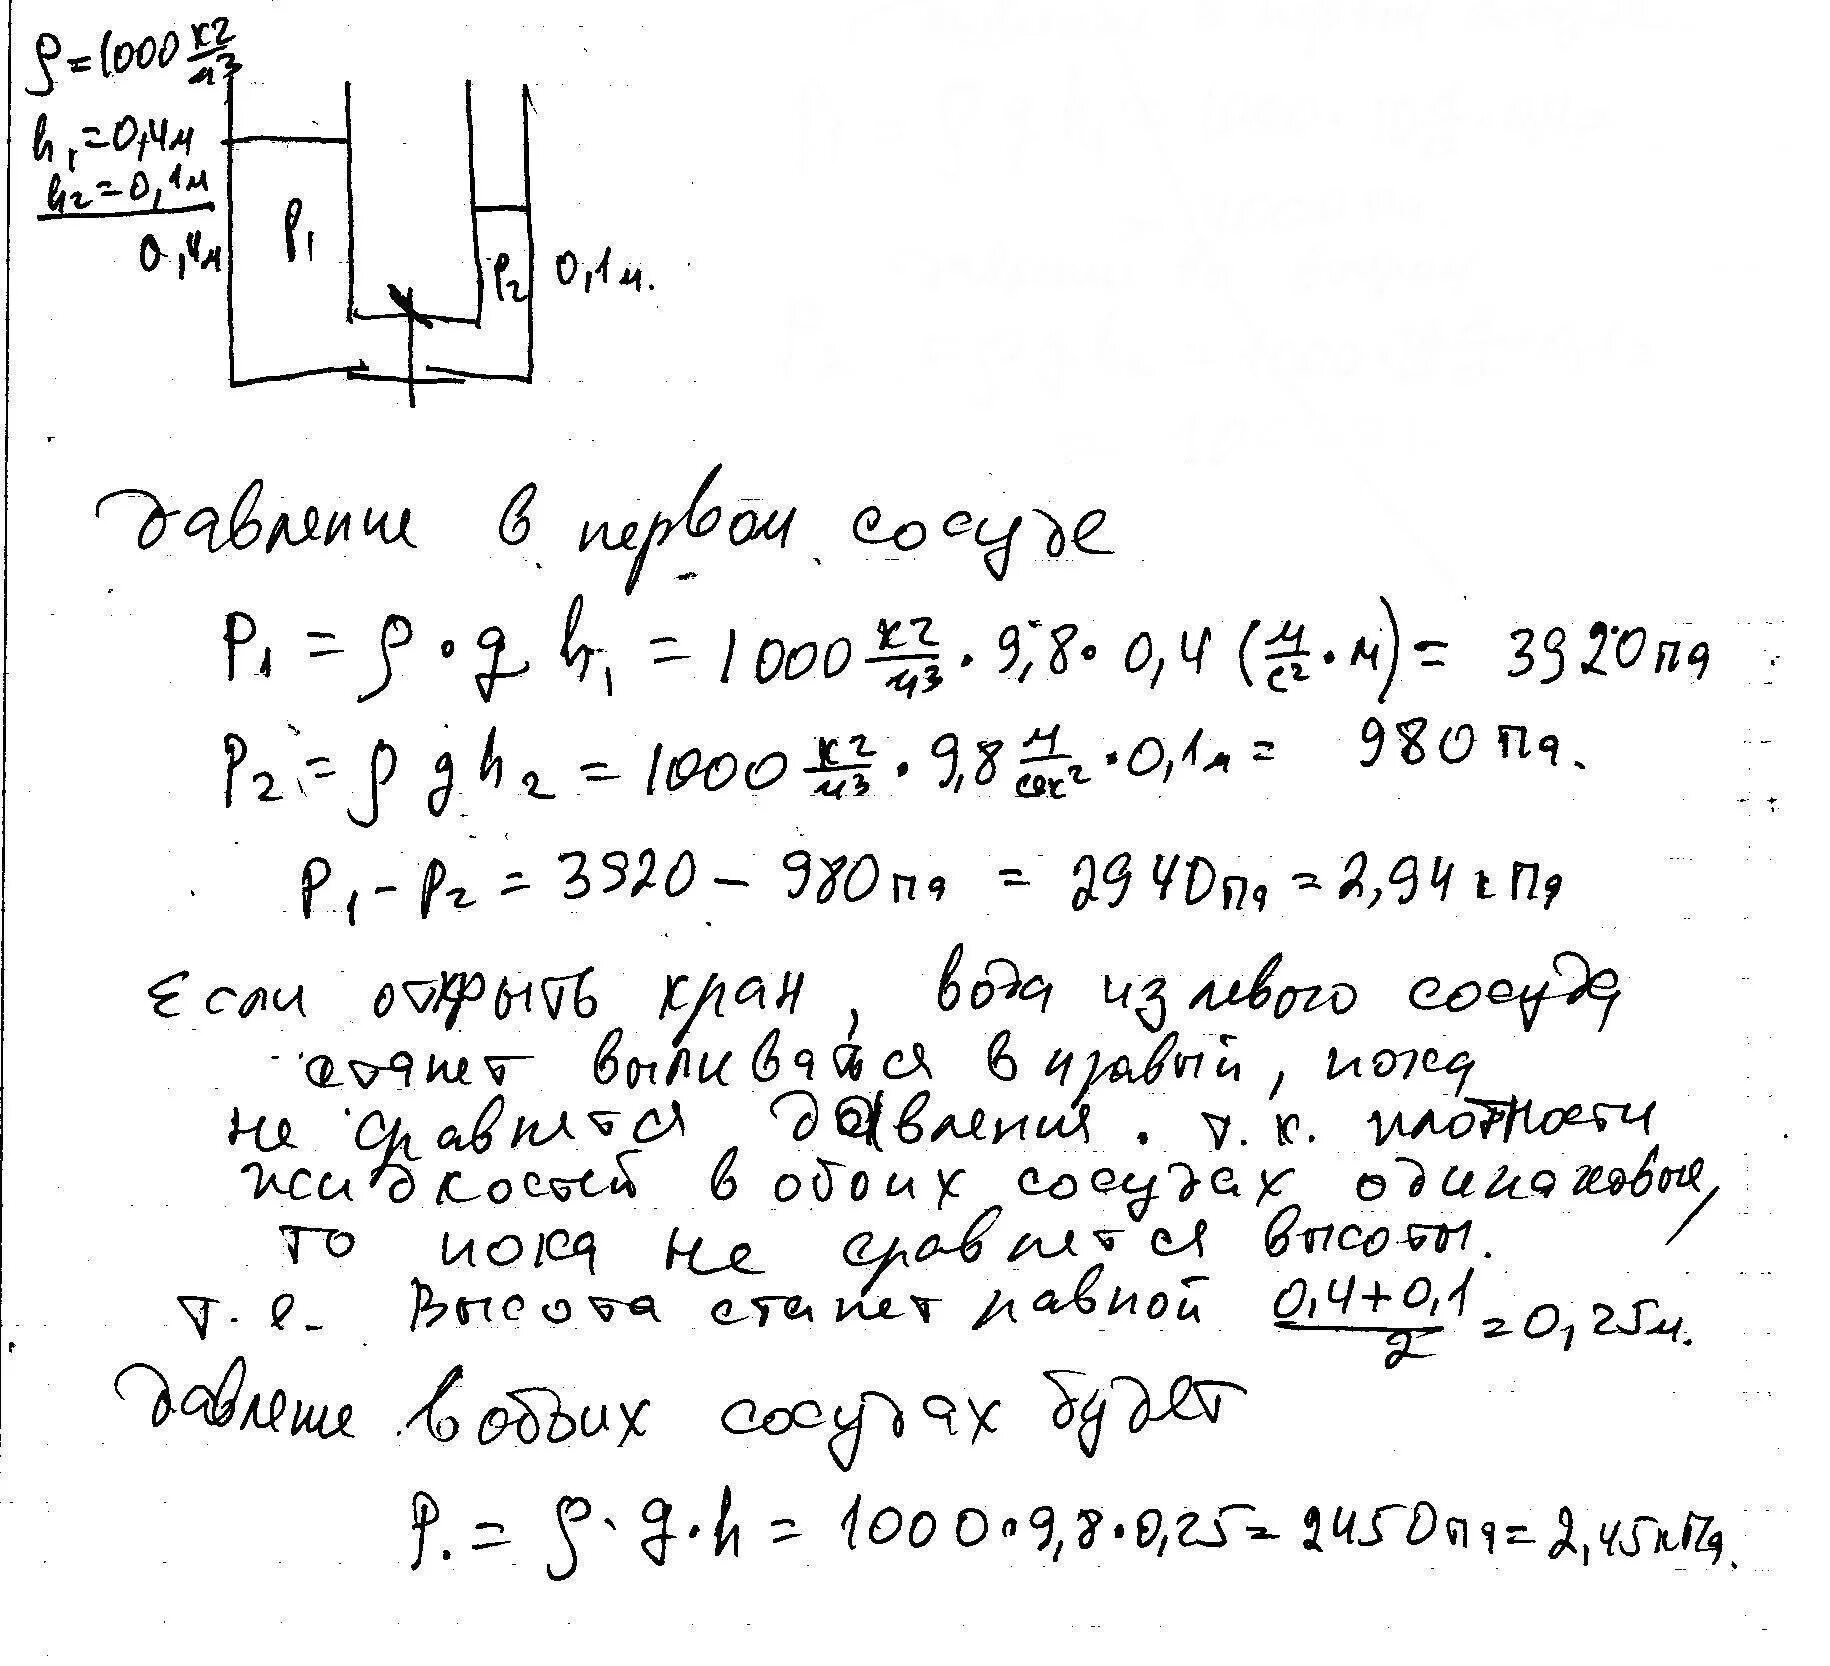 ρ = 1000 кг/м³
h₁ = 0,4 м
h₂ = 0,1 м
0,4 м
P₁
P₂
0,1 м.
давление в первом сосуде
P₁ = ρ · g h₁ = 1000 кг/м³ · 9,8 · 0,4 (м/с² · м) = 3920 Па
P₂ = ρ g h₂ = 1000 кг/м³ · 9,8 м/сек² · 0,1 м = 980 Па.
P₁ - P₂ = 3920 - 980 Па = 2940 Па = 2,94 кПа
Если открыть кран, вода из левого сосуда
станет выливаться в правый, пока
не сравнятся давления. т.к. плотности
жидкостей в обоих сосудах одинаковые,
то пока не сравнятся высоты.
т.е. Высота станет равной (0,4+0,1)/2 = 0,25 м.
давление в обоих сосудах будет
P. = ρ · g · h = 1000 · 9,8 · 0,25 = 2450 Па = 2,45 кПа.